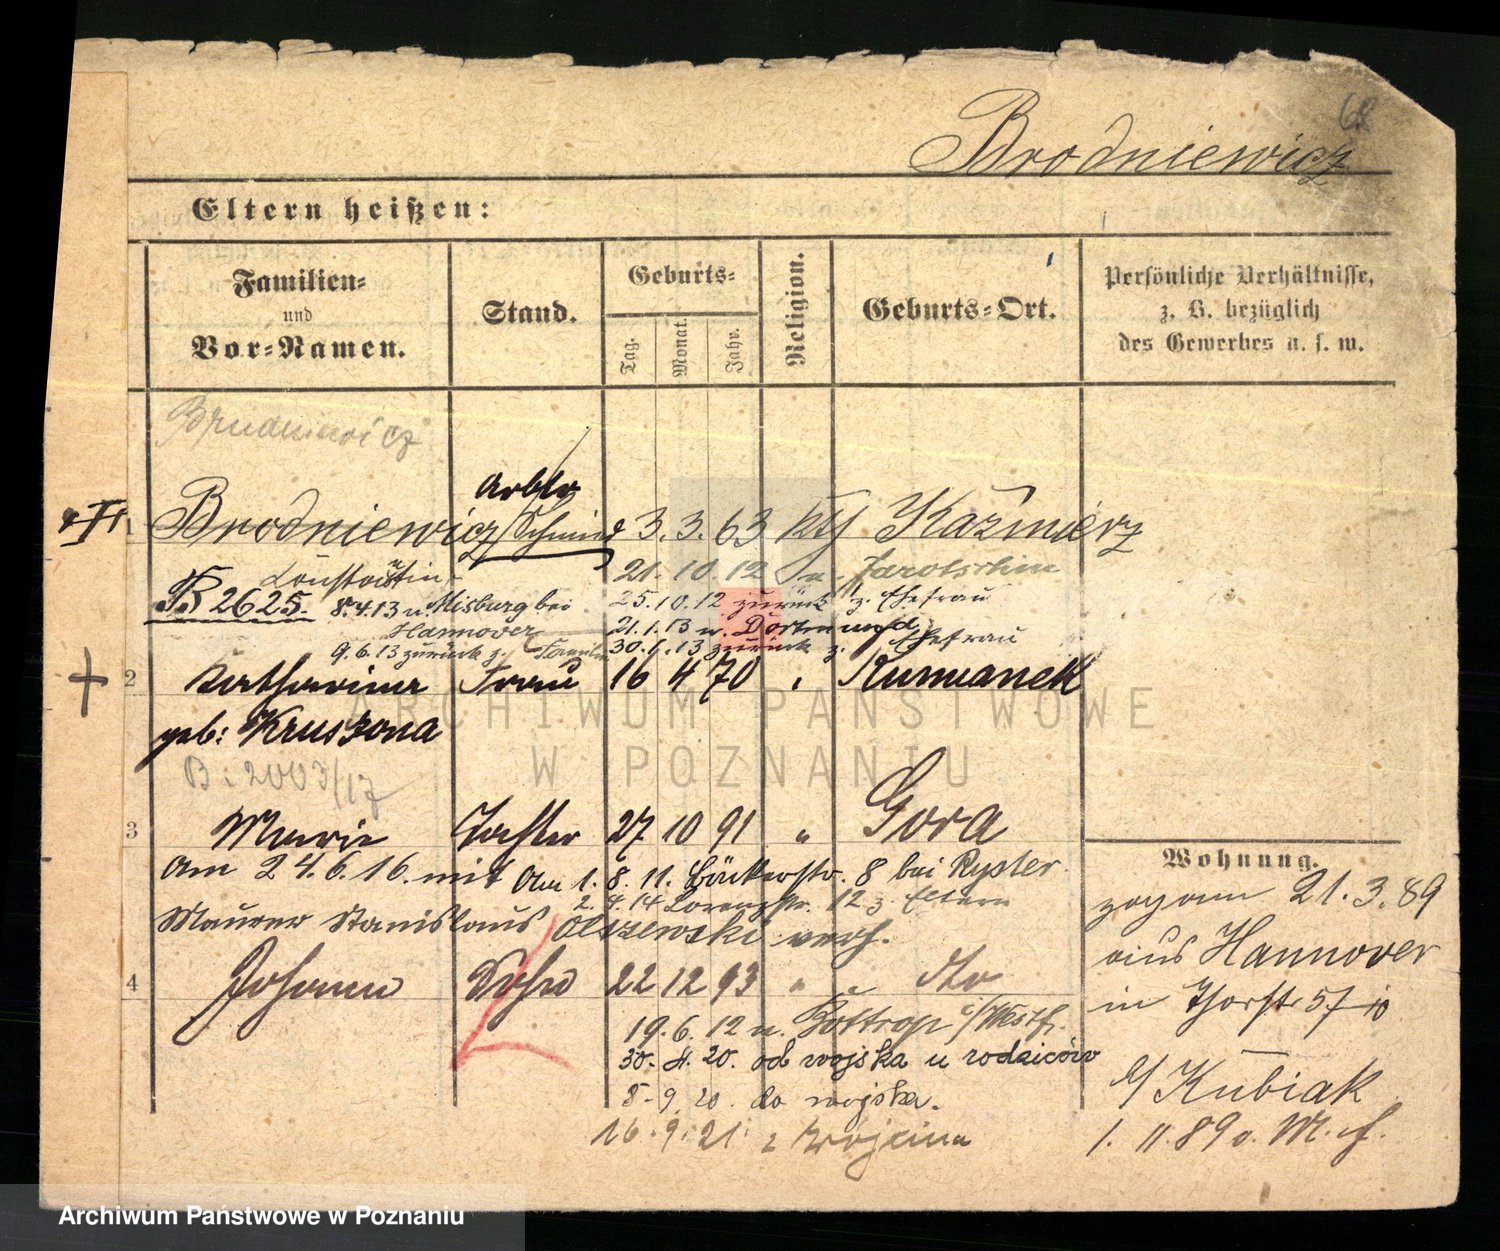 68
Brodniewicz
Eltern heißen:
Familien=
und
Vor=Namen.
Stand.
Geburts=
Tag.
Monat.
Jahr.
Religion.
Geburts=Ort.
Persönliche Verhältnisse,
z. B. bezüglich
des Gewerbes u. s. w.
Brudniewicz
Arbtr
1 Brodniewicz Schmied 3. 3. 63 Kaźmierz
Constantin 21. 10. 12 n. Jarotschin
B 2625. 8.4.13 n. Misburg bei 25.10.12 zurück z. Ehefrau
Hannover 21.1.13 n. Dortmund
9.6.13 zurück z. Familie 30.1.13 zurück z. Ehefrau
2 Katharina Frau 16 4 70 " Rumianek
geb: Kruszona
B: 2003/17
3 Marie Tochter 27 10 91 " Gora
Am 24.6.16. mit Am 1. 8. 11. Bäckerstr. 8 bei Ryster
2. 4. 14 Lorenzstr. 12 z. Eltern
Maurer Stanislaus Olszewski verh.
4 Johann Sohn 22 12 93 " dto
19. 6. 12 n. Bottrop i/Westf.
30. 4. 20. od wojska u rodziców
8. 9. 20. do wojska.
16. 9. 21. z wojska
Wohnung.
zog am 21. 3. 89
aus Hannover
in Thorstr 57
b/ Kubiak
1. 11. 89
ARCHIWUM PAŃSTWOWE
W POZNANIU
Archiwum Państwowe w Poznaniu